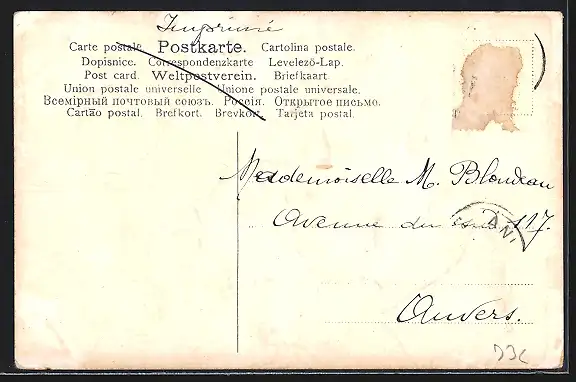 Imprimé
Carte postale. Postkarte. Cartolina postale.
Dopisnice. Correspondenzkarte Levelező-Lap.
Post card. Weltpostverein. Briefkaart.
Union postale universelle Unione postale universale.
Всемірный почтовый союзъ. Россія. Открытое письмо.
Cartão postal. Brefkort. Brevkort. Tarjeta postal.
Mademoiselle M. Blondeau
Avenue du 117.
Anvers.
D3C